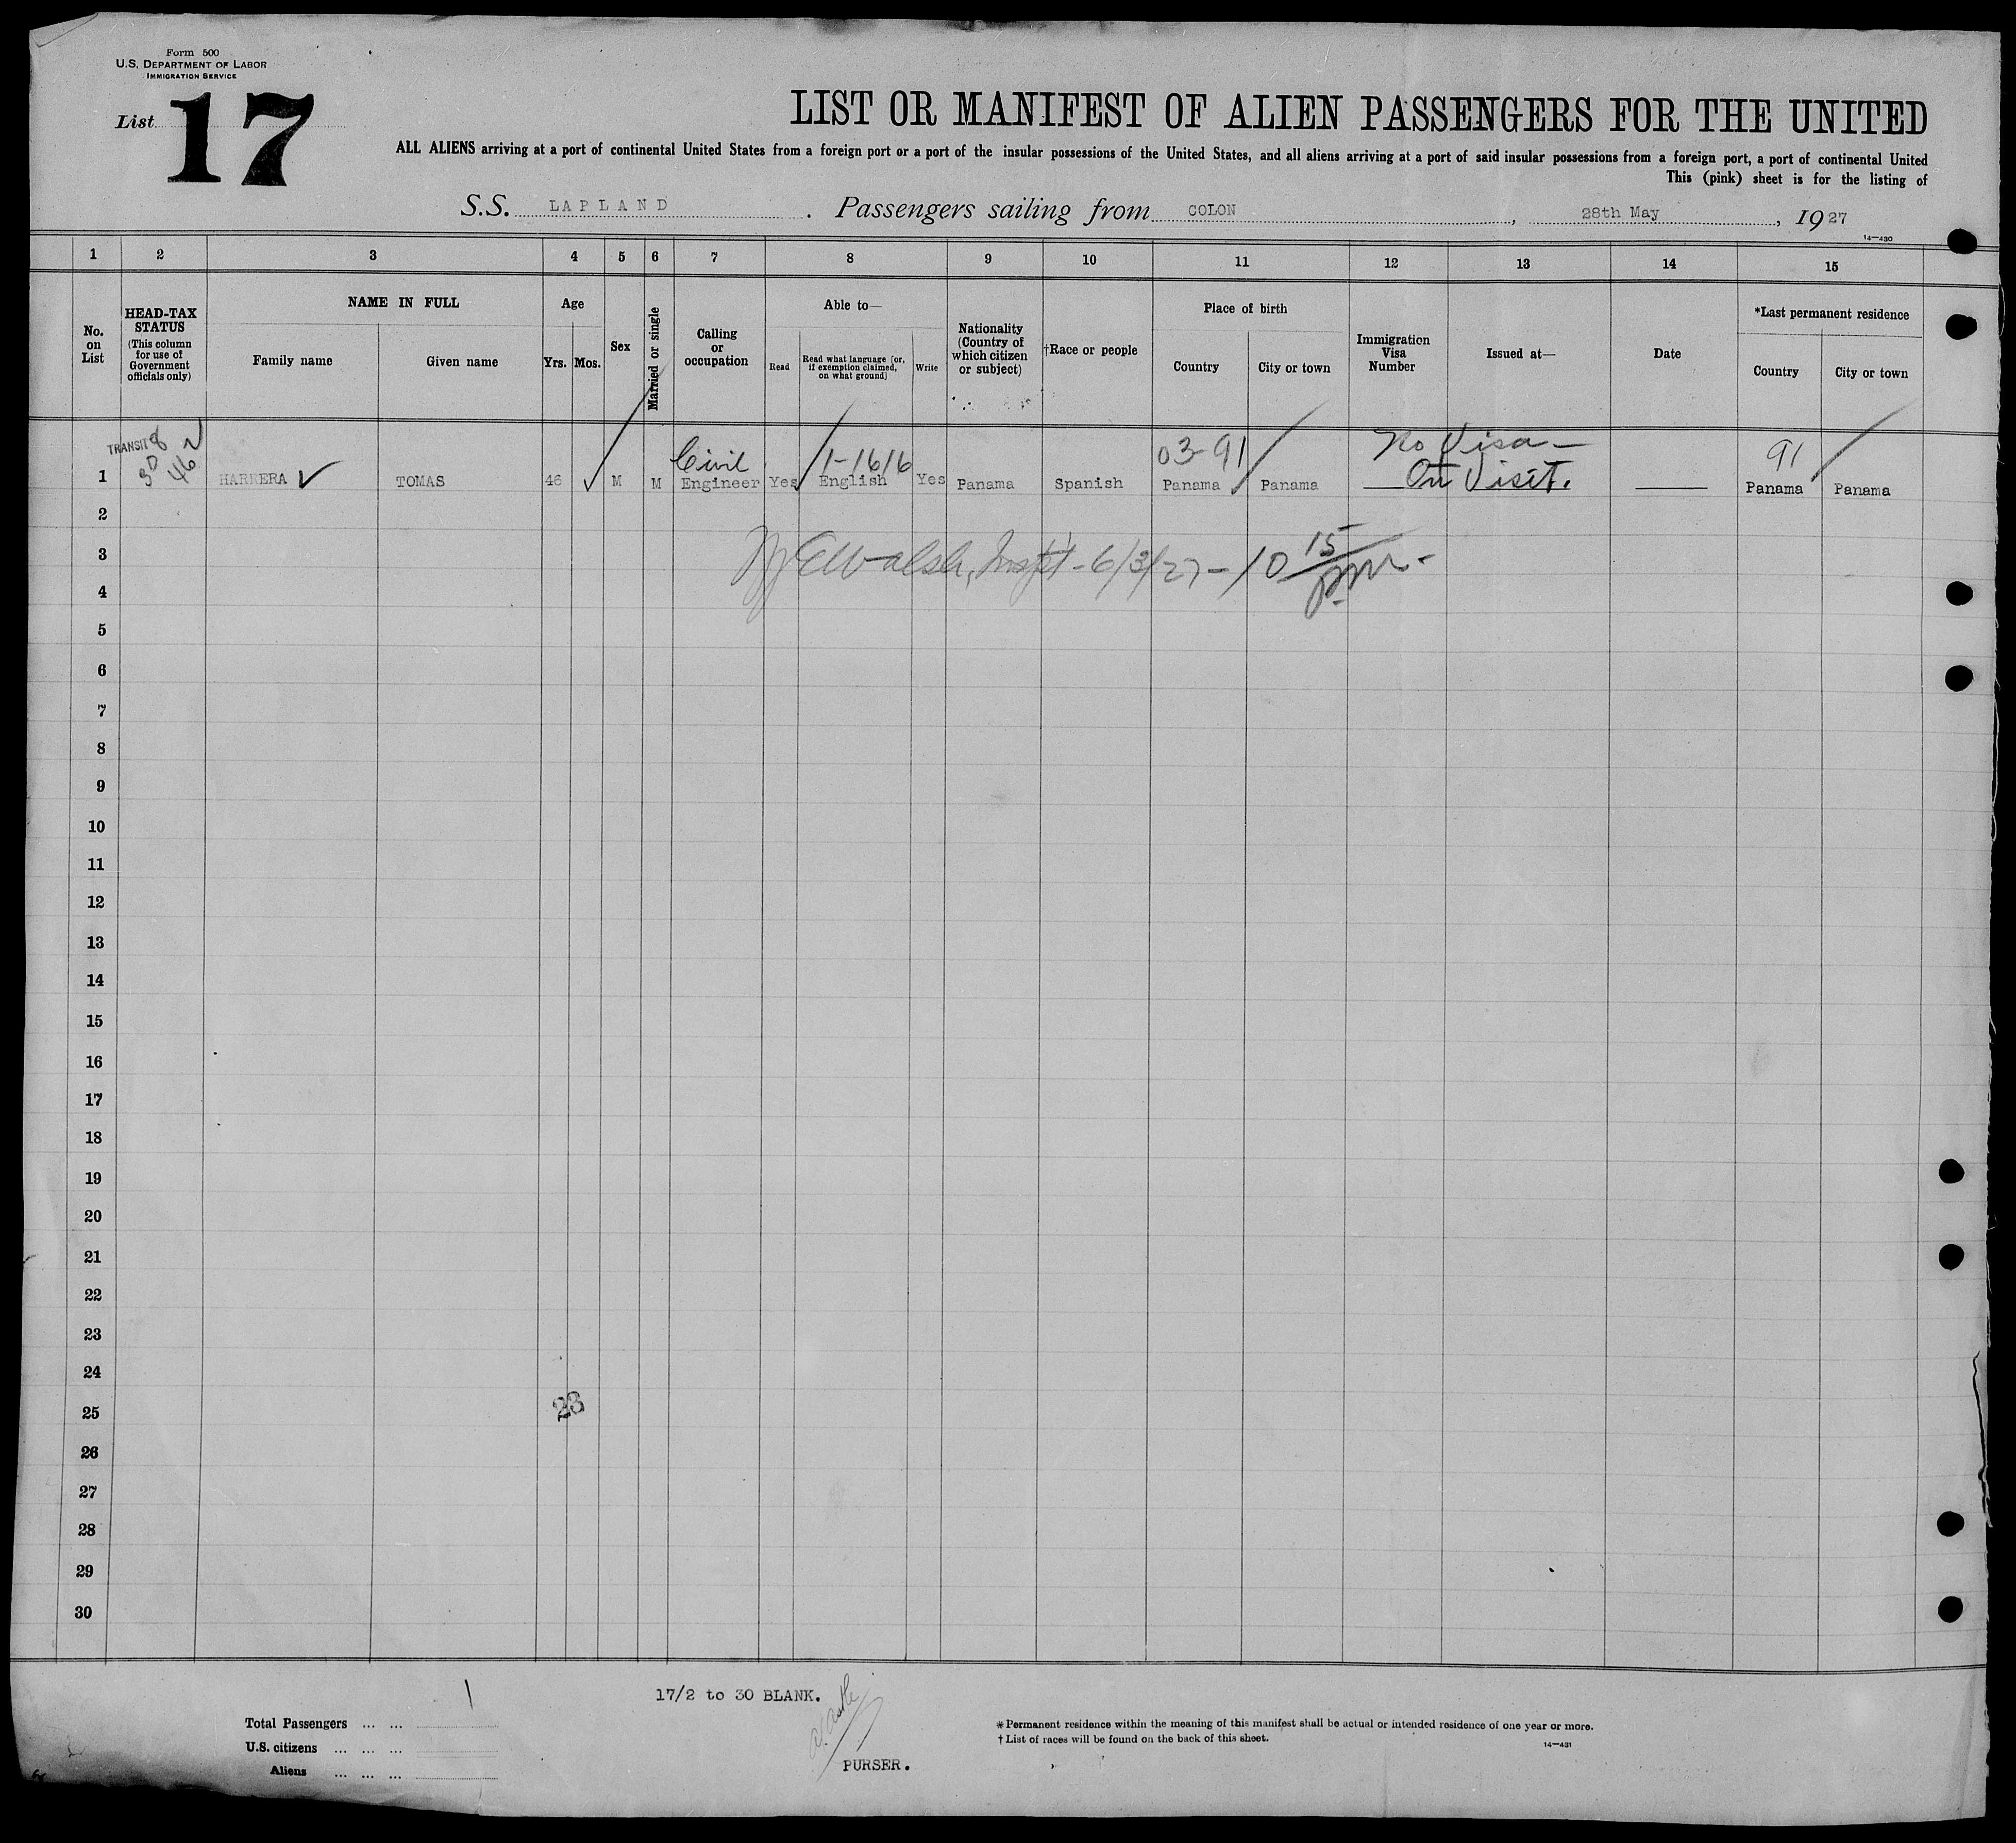 Form 500
U.S. DEPARTMENT OF LABOR
IMMIGRATION SERVICE
List 17
LIST OR MANIFEST OF ALIEN PASSENGERS FOR THE UNITED
ALL ALIENS arriving at a port of continental United States from a foreign port or a port of the insular possessions of the United States, and all aliens arriving at a port of said insular possessions from a foreign port, a port of continental United
This (pink) sheet is for the listing of
S.S. LAPLAND . Passengers sailing from COLON , 28th May , 1927
14—430
1 2 3 4 5 6 7 8 9 10 11 12 13 14 15
No. on List
HEAD-TAX STATUS (This column for use of Government officials only)
NAME IN FULL
Family name
Given name
Age
Yrs. Mos.
Sex
Married or single
Calling or occupation
Able to—
Read
Read what language [or, if exemption claimed, on what ground]
Write
Nationality (Country of which citizen or subject)
†Race or people
Place of birth
Country
City or town
Immigration Visa Number
Issued at—
Date
*Last permanent residence
Country
City or town
TRANSIT
Civil 1-1616 03-91 No Visa — 91
1 HARRERA TOMAS 46 M M Engineer Yes English Yes Panama Spanish Panama Panama On Visit. Panama Panama
2
3
Walsh, Inspt - 6/3/27 - 10 15 pm -
4
5
6
7
8
9
10
11
12
13
14
15
16
17
18
19
20
21
22
23
24
25 23
26
27
28
29
30
17/2 to 30 BLANK.
Total Passengers ... ... 1
U.S. citizens ... ... ...
Aliens ... ... ...
PURSER.
*Permanent residence within the meaning of this manifest shall be actual or intended residence of one year or more.
†List of races will be found on the back of this sheet.
14—431